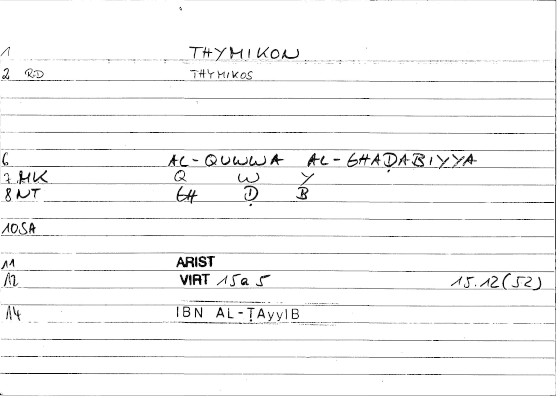 1 THYMIKON
2 RD THYMIKOS
6 AL-QUWWA AL-GHAḌABIYYA
7 MK Q W Y
8 NT GH Ḍ B
10 SA
11 ARIST
12 VIRT 15a 5 15.12(52)
14 IBN AL-ṬAyyIB